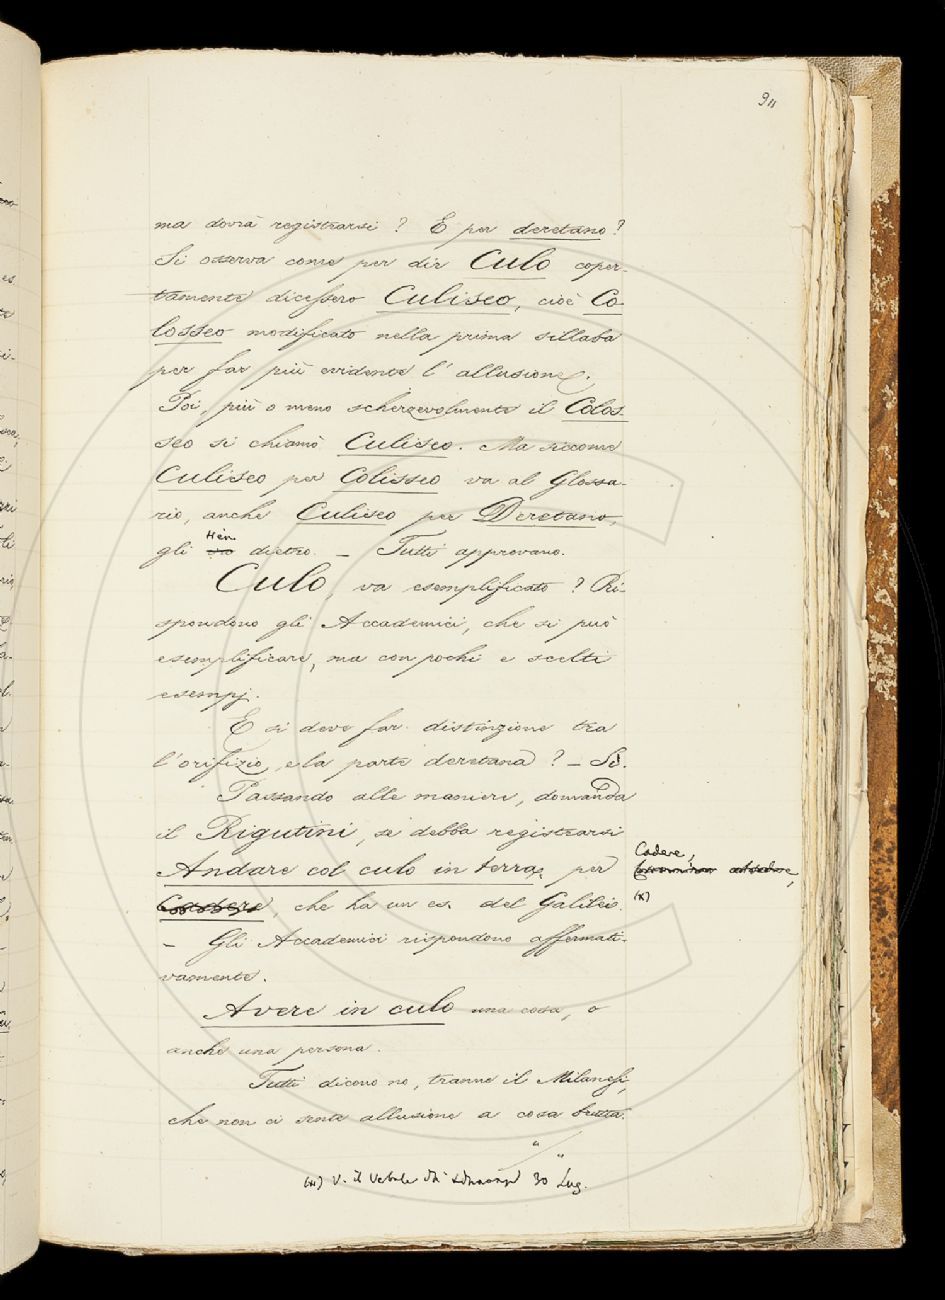 9
ma dovrà registrarsi? E per deretano?
Si osserva come per dir Culo coper-
tamente dicessero Culiseo, cioè Co-
losseo modificato nella prima sillaba
per far più evidente l'allusione.
Poi, più o meno scherzevolmente il Colos-
seo si chiamò Culiseo. Ma siccome
Culiseo per Colisseo va al Glossa-
rio, anche Culiseo per Deretano,
gli dietro. – Tutti approvano.
Culo, va esemplificato? Ri-
spondono gli Accademici, che si può
esemplificare, ma con pochi e scelti
esempj.
E si deve far distinzione tra
l'orifizio, e la parte deretana? – Sì.
Passando alle maniere, domanda
il Rigutini, se debba registrarsi
Andare col culo in terra, per
Cadere,
(x)
che ha un es. del Galileo.
– Gli Accademici rispondono affermati-
vamente.
Avere in culo una cosa, o
anche una persona.
Tutti dicono no, tranne il Milanesi,
che non ci sente allusione a cosa brutta.
(x) V. il Verbale 30 Lug.